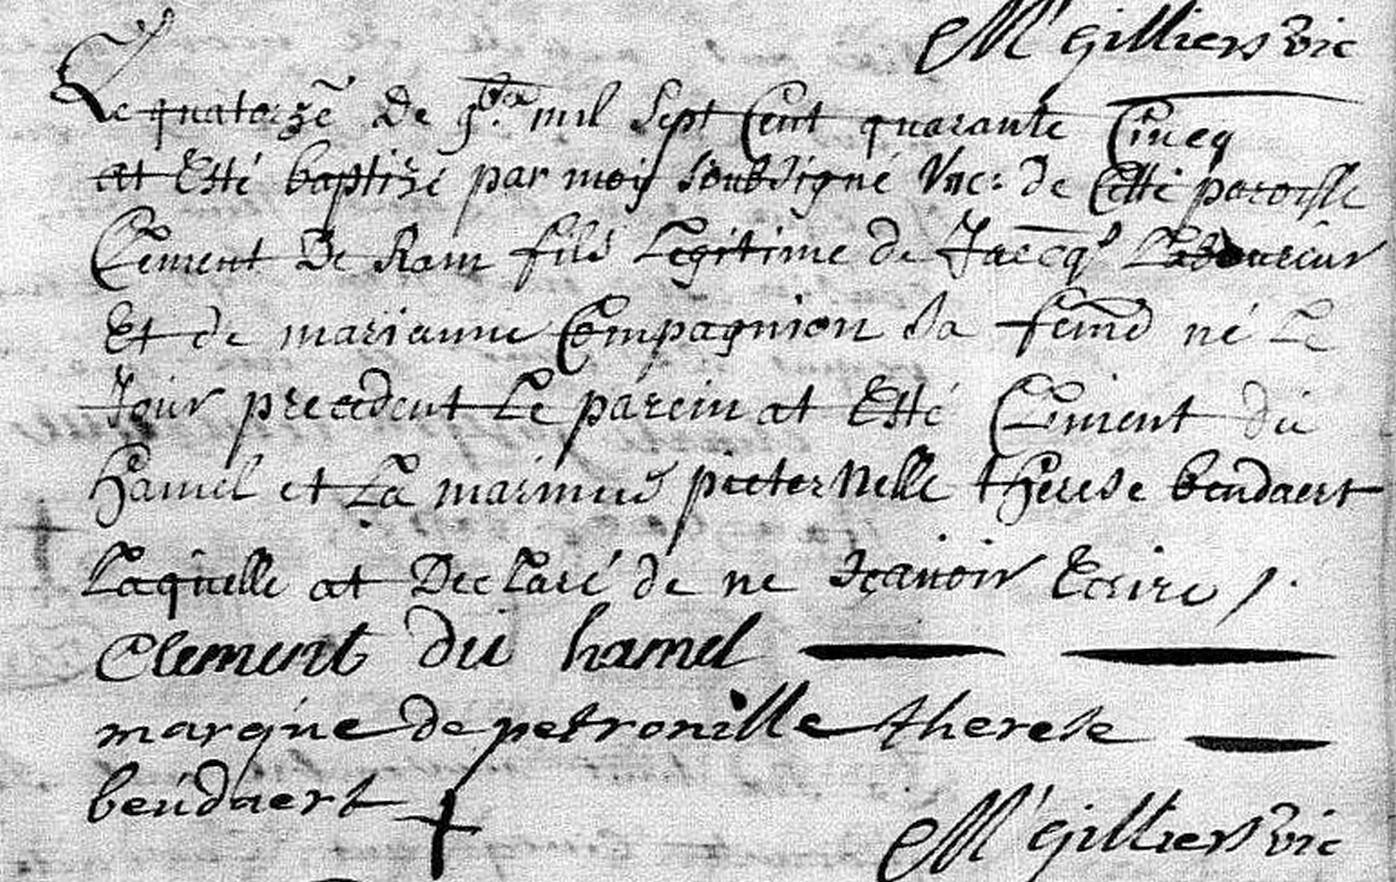 M Gilliers vic
Le quatorze De 9bre mil Sept Cent quarante Cincq
at Esté baptizé par moy soubsigné Vic: de Cette paroisse
Clement De Ram fils Legitime de Jaecqs Laboureur
Et de marianne Compagnion sa feme né Le
Jour precedent Le parein at Esté Clement du
Hamel et La marinne pieternelle therese beudaert
Laquelle at Declaré de ne sçauoir Ecrire /.
Clement du hamel
marque de petronille therese
beudaert
M Gilliers vic